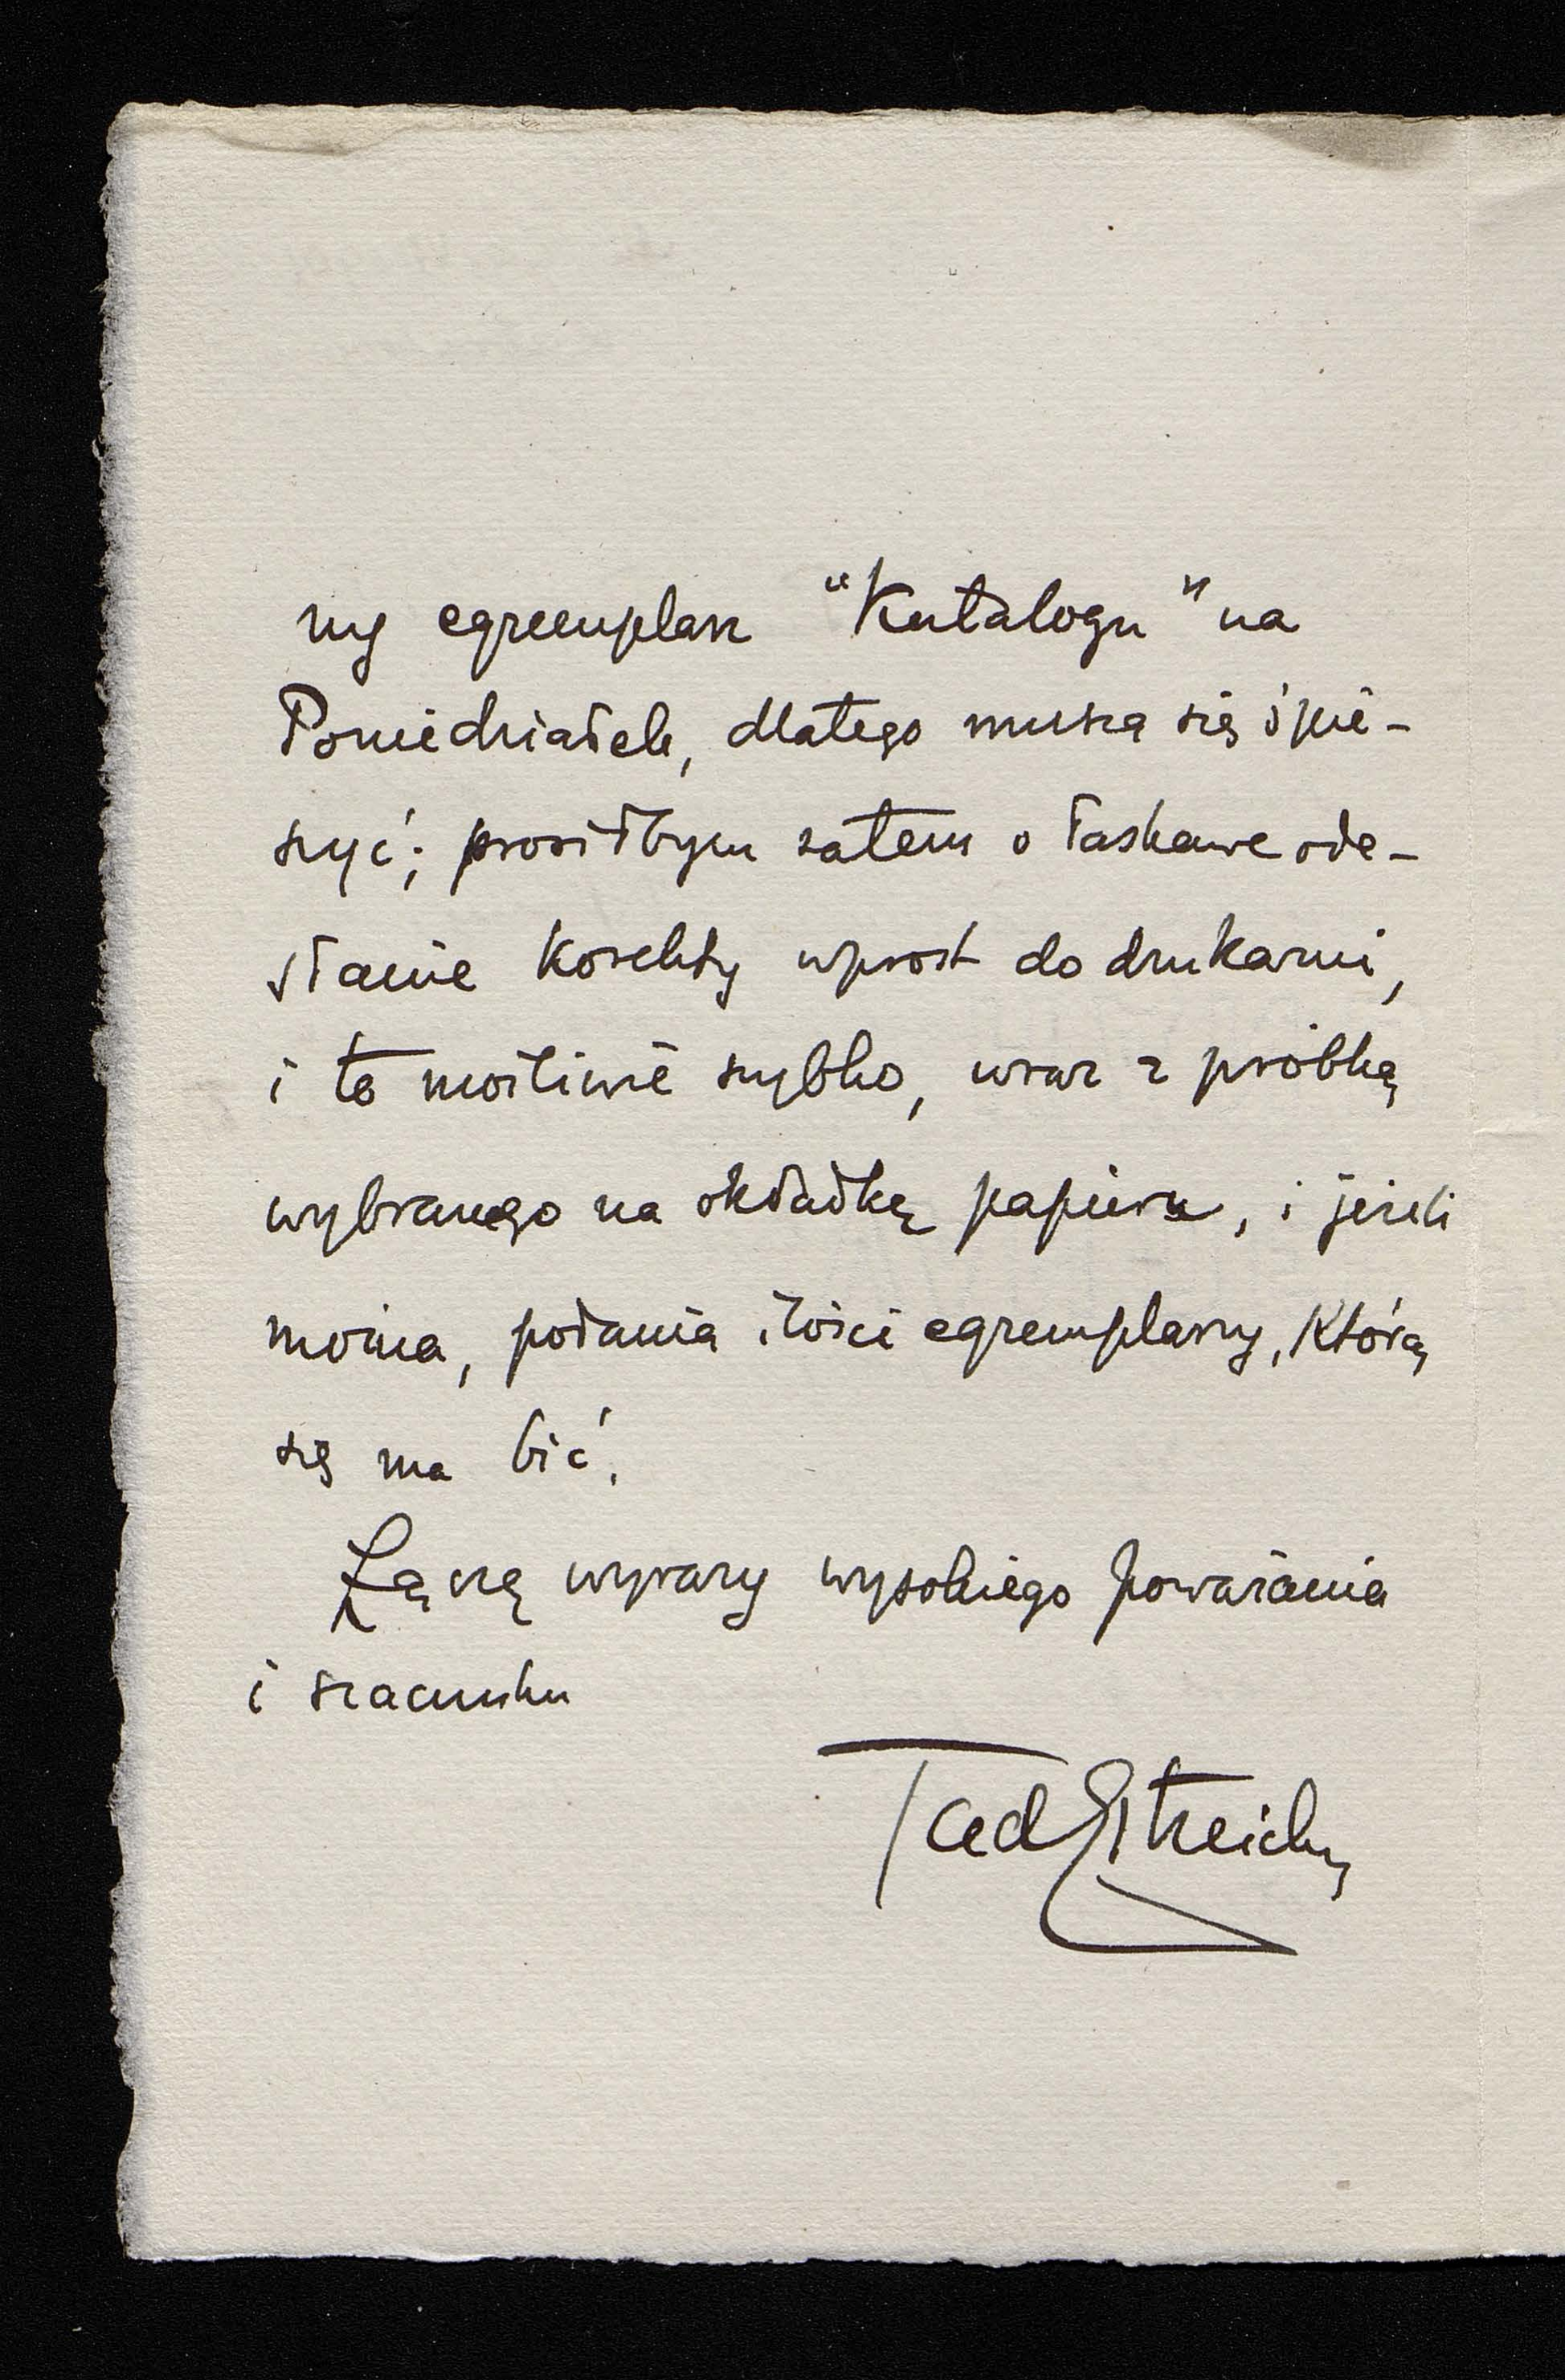 ny egzemplarz "Katalogu" na
Poniedziałek, dlatego muszą się śpie-
szyć; prosiłbym zatem o łaskawe ode-
słanie korekty wprost do drukarni,
i to możliwie szybko, wraz z próbką
wybranego na okładkę papieru, i jeżeli
można, podania ilości egzemplarzy, którą
się ma bić.
Łączę wyrazy wysokiego poważania
i szacunku
TadEstreicher